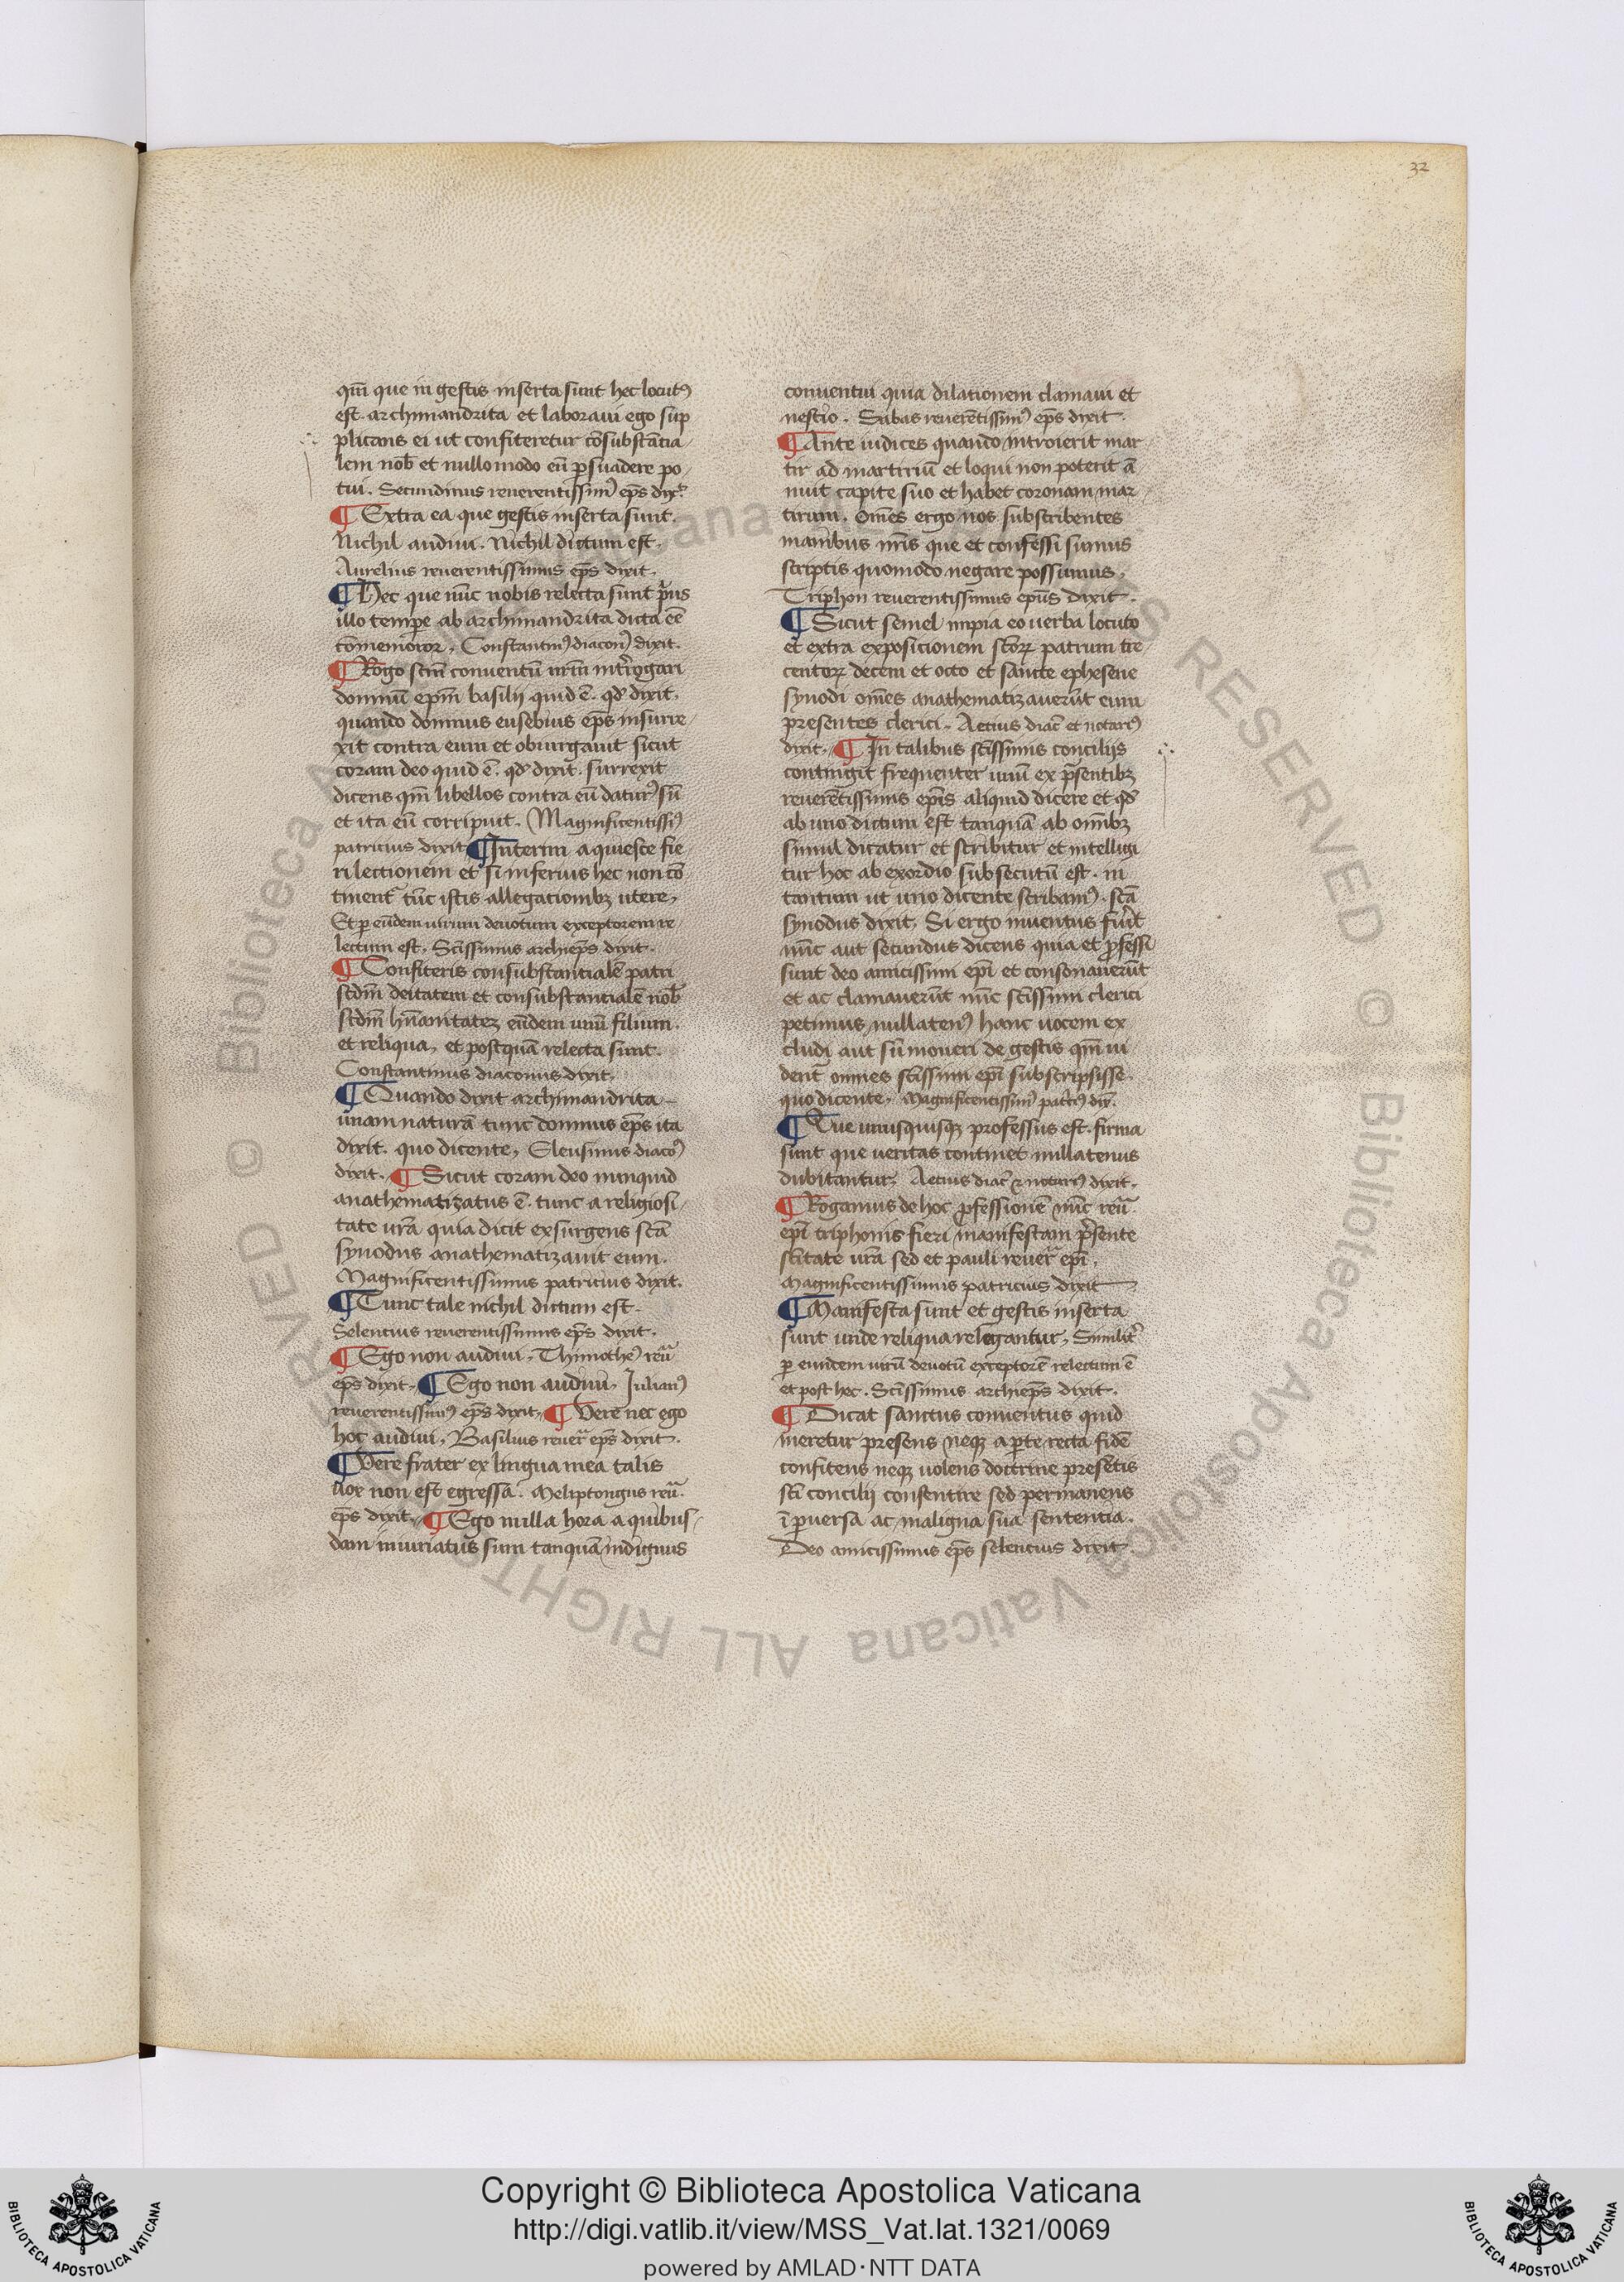 32
qm̄ que in gestis inserta sunt hec locutꝰ
est archimandrita et laboraui ego sup
plicans ei ut confiteretur cōsubstācia
lem nob̄ et nullo modo eū ꝑsuadere po
tui. Secundinus reuerentissimꝰ ep̄s dix̄
¶ Extra ea que gestis inserta sunt.
Nichil audiui. Nichil dictum est.
Aurelius reuerentissimus ep̄s dixit.
¶ Hec que nūc nobis relecta sunt
illo tempe ab archimandrita dicta eē
cōmemoror. Constantinꝰ diaconꝰ dixit.
¶ Rogo scm̄ conuentū nrm̄ intr̄ogari
domnū epm̄ basilij quid ē qd̓ dixit.
quando domnus eusebius ep̄s insurre
xit contra eum et obiurgauit sicut
coram deo quid ē qd̓ dixit. surrexit
dicens qm̄ libellos contra eū daturꝰ sū
et ita eū corripuit. Magnificentissiꝰ
patricius dixit ¶ Interim aquiesce fie
ri lectionem et si inferius hec non cō
tinent᷑ tūc istis allegationibꝫ utere.
Et ꝑ eūdem uirum deuotum exceptorem re
lectum est. Sctīssimus archiep̄s dixit.
¶ Confiteris consubstantialē patri
scdm̄ deitatem et consubstantialē nob̄
scdm̄ hūanitateꝫ eūdem unū filium.
et reliqua. et postquā relecta sunt.
Constantinus diaconus dixit.
¶ Quando dixit archimandrita
unam naturā tunc domnus ep̄s ita
dixit. quo dicente. Eleusinus diacoꝰ
dixit. ¶ Sicut coram deo nunquid
anathematizatus ē. tunc a religiosi
tate urā quia dicit exsurgens sctā
synodus anathematizauit eum.
Magnificentissimus patricius dixit.
¶ Tunc tale nichil dictum est.
Seleucius reuerentissimus ep̄s dixit.
¶ Ego non audiui. Thimotheꝰ reu᷑
ep̄s dixit. ¶ Ego non audiui. Iulianꝰ
reuerentissimꝰ ep̄s dixit. ¶ Vere nec ego
hoc audiui. Basilius reuer᷑ ep̄s dixit.
¶ Vere frater ex lingua mea talis
uox non est egressa. Meliptongus reu᷑
ep̄s dixit. ¶ Ego nulla hora a quibus
dam iniuriatus sum tanquā indignus
conuentui quia dilationem clamaui et
nescio. Sabas reuerētissimꝰ ep̄s dixit.
¶ Ante iudices quando introierit mar
tir ad martiriū et loqui non poterit ā
nuit capite suo et habet coronam mar
tirum. Om̄es ergo nos subscribentes
manibus nrīs que et confessi sumus
scriptis quomodo negare possumus.
Triphon reuerentissimus epūs dixit.
¶ Sicut semel impia eo uerba locuto
et extra exposicionem sctoꝝ patrum tre
centoꝝ decem et octo et sancte ephesene
synodi om̄es anathematizauerūt eum
presentes clerici. Aetius diac̄ et notariꝰ
dixit. ¶ In talibus sctīssimis concilijs
contingit frequenter unū ex p̄sentibꝫ
reuerētissimis epīs aliquid dicere et qd̓
ab uno dictum est tanquā ab om̄ibꝫ
simul dicatur et scribitur et intelligi
tur hoc ab exordio subsecutū est. in
tantum ut uno dicente scribamꝰ sctā
synodus dixit. Si ergo inuentus fuīt
nūc aut secundus dicens quia et ꝓfessi
sunt deo amicissimi epī et consonauerūt
et ac clamauerūt nūc sctīssimi clerici
petimus nullatenꝰ hanc uocem ex
cludi aut sūmoueri de gestis qm̄ ui
dent᷑ omnes sctīssimi epī subscripsisse.
quo dicente. Magnificentissimꝰ patriꝰ dix̄.
¶ Que unusquisqꝫ professus est. firma
sunt que ueritas continet nullatenus
dubitantur. Aetius diac̄ ⁊ notariꝰ dixit.
¶ Rogamus de hoc ꝓfessionē nūc reu᷑
epī triphonis fieri manifestam p̄sente
sctītate urā sed et pauli reuer᷑ epī.
Magnificentissimus patricius dixit
¶ Manifesta sunt et gestis inserta
sunt unde reliqua relegantur. Similit᷑
ꝑ eundem uirū deuotū exceptorē relectum ē
et post hec. Sctīssimus archiep̄s dixit.
¶ Dicat sanctus conuentus quid
meretur presens neqꝫ aꝑte recta fidē
confitens neqꝫ uolens doctrine presētis
sctī concilij consentire sed permanens
ī ꝑuersa ac maligna sua sententia.
Deo amicissimus ep̄s seleucius dixit
© Biblioteca Apostolica Vaticana ALL RIGHTS RESERVED
Copyright © Biblioteca Apostolica Vaticana
http://digi.vatlib.it/view/MSS_Vat.lat.1321/0069
powered by AMLAD·NTT DATA
BIBLIOTECA APOSTOLICA VATICANA
BIBLIOTECA APOSTOLICA VATICANA